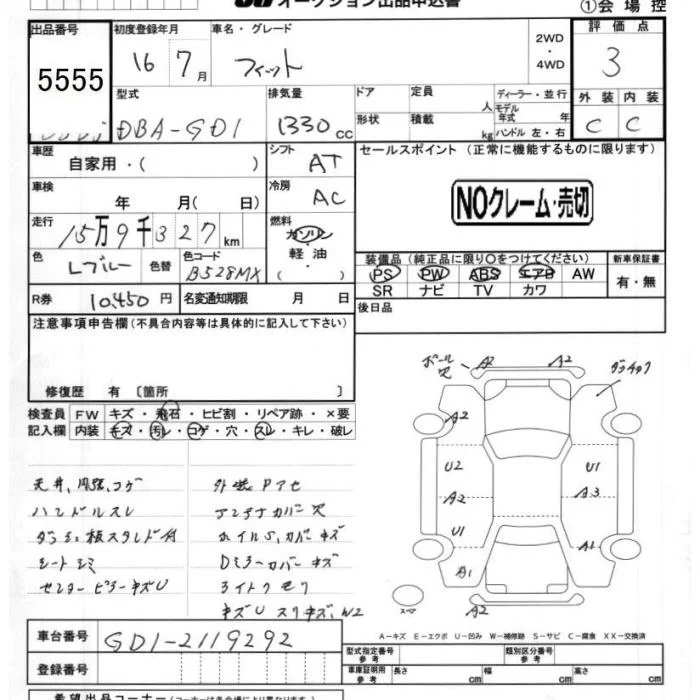 オークション出品申込書
①会場控
出品番号 初度登録年月 車名・グレード 2WD・4WD 評価点
5555 16年 7月 フィット 3
型式 排気量 ドア 定員 人 ディーラー・並行 外装 内装
DBA-GD1 1330cc 形状 積載 kg モデル年式 年 ハンドル 左・右 C C
車歴 自家用・( ) シフト AT セールスポイント (正常に機能するものに限ります)
車検 年 月( 日) 冷房 AC NOクレーム・売切
走行 15万9千327km 燃料 ガソリン 軽油 ( ・ )
色 Lブルー 色替 色コード B528MX
装備品 (純正品に限り○をつけてください) 新車保証書
PS PW ABS エアB AW 有・無
SR ナビ TV カワ
R券 10,450円 名変通知期限 月 日 後日品
注意事項申告欄(不具合内容等は具体的に記入して下さい)
修復歴 有 〔箇所 〕
検査員 FW キズ・飛石・ヒビ割・リペア跡・×要
記入欄 内装 キズ・汚レ・コゲ・穴・スレ・キレ・破レ
天井、内張、コゲ 外装Pアセ
ハンドルスレ アンテナカバー欠
ダッシュ板スタンド付 ホイルS、カバーキズ
シートシミ Dミラーカバーキズ
センターピラーキズU ライトクモリ
キズU スリキズ、W2
ポール穴 A2 A2
A2
U2 U1
A2 A3
U1 A1
A1
A2
A-キズ E-エクボ U-凹み W-補修跡 S-サビ C-腐食 XX-交換済
車台番号 GD1-2119292
登録番号
型式指定番号 参考 類別区分番号 参考
車庫証明用 参考 長さ cm 幅 cm 高さ cm
希望出品コーナー(コーナーは各会場により異なります)